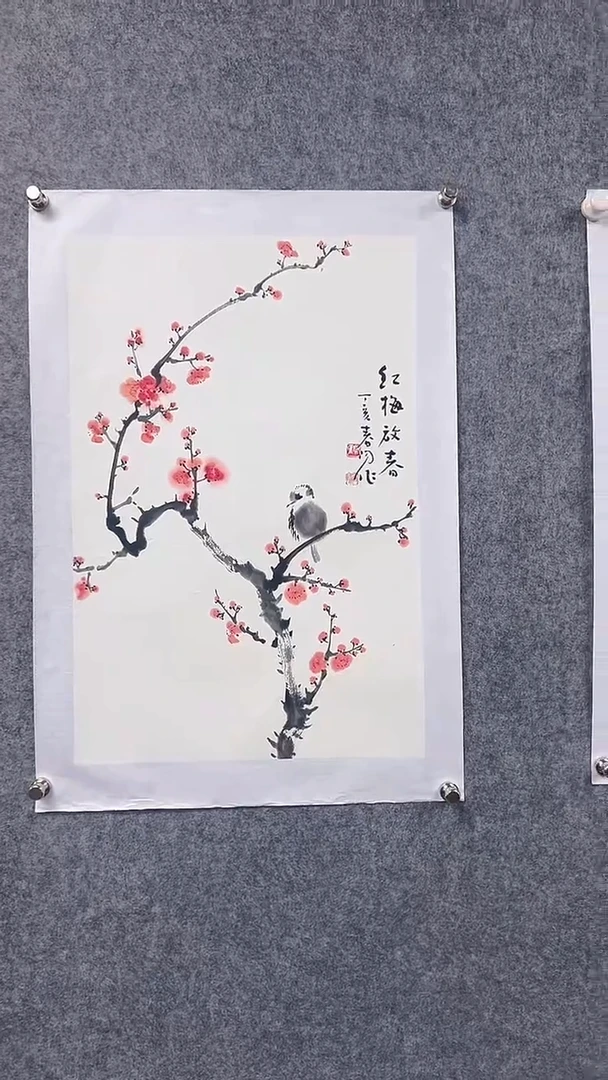 红梅放春
丁亥春月作